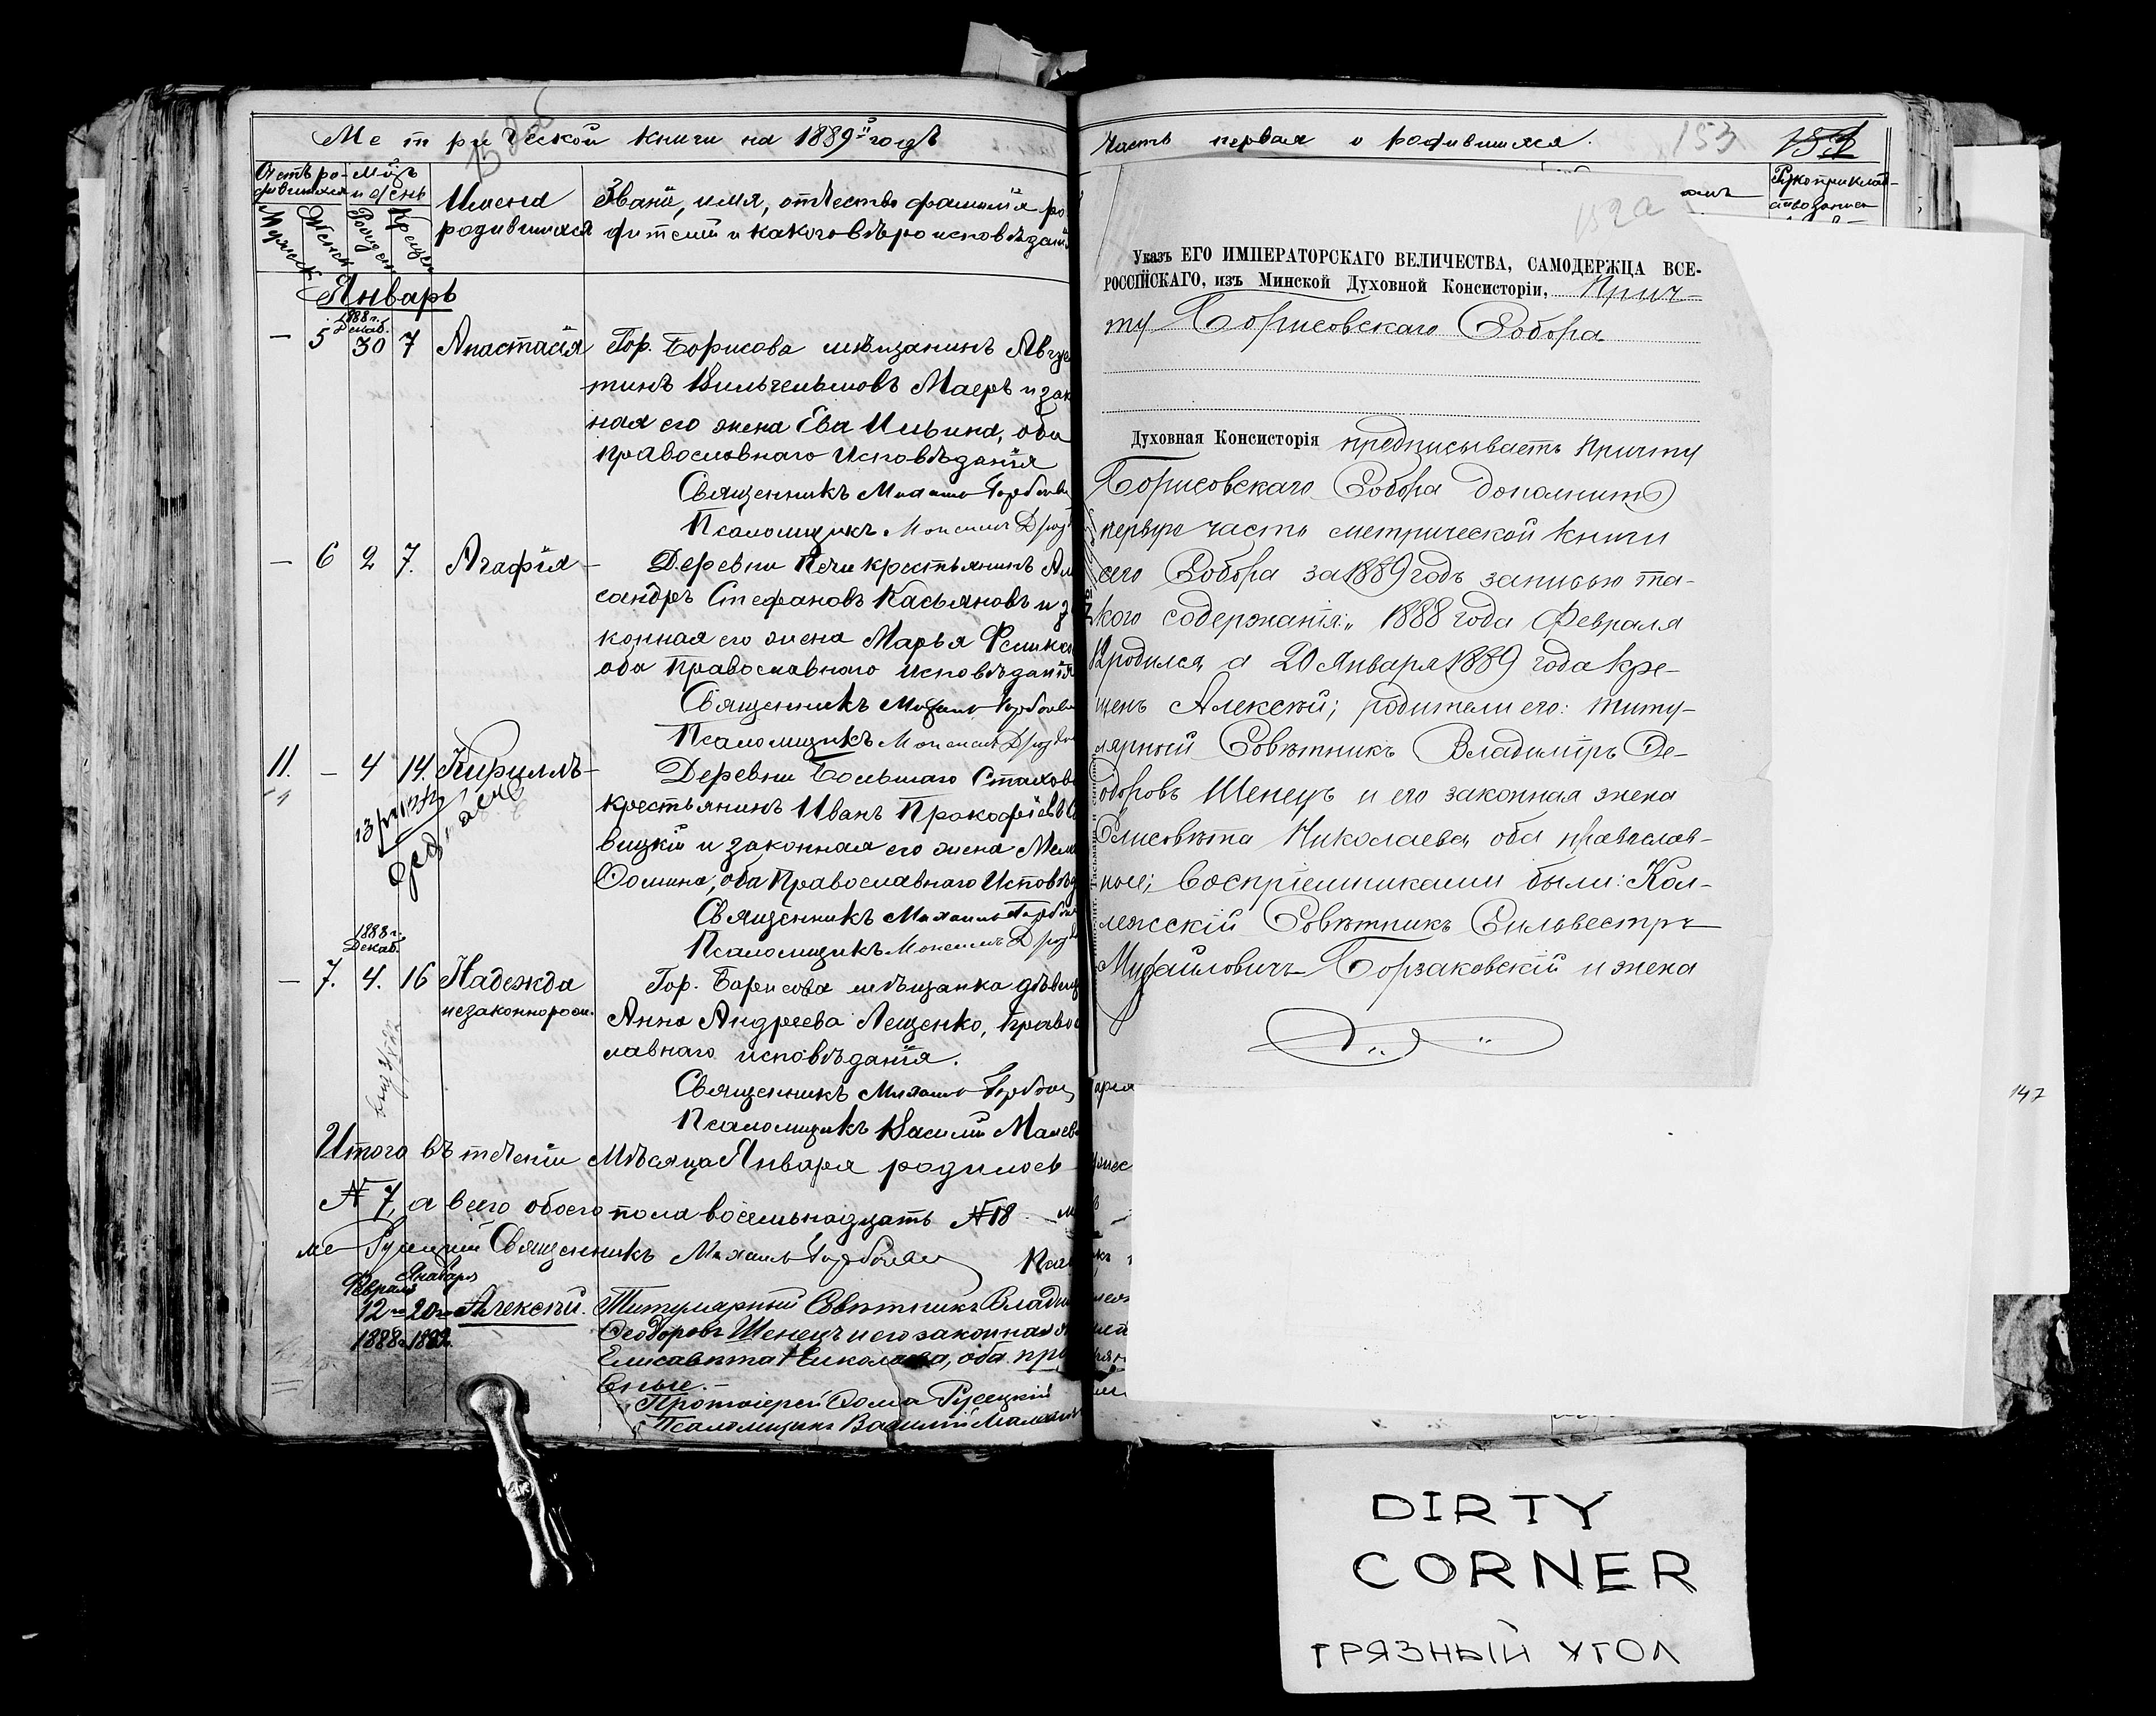 Метрической книги на 1889й годъ
Счетъ родившихся
Мѣс. и день
Мужеск.
Женск.
Рожден.
Крещен.
Имена родившихся
Званіе, имя, отчество фамилія ро
дителей и какого вѣроисповѣдані
Январь
1888 г. Декаб.
— 5 30 7 Анастасія Гор. Борисова мѣщанинъ Авгус
тинъ Вильгельмовъ Маеръ и зак
ная его жена Ева Ильина, оба
православнаго исповѣданія
Священникъ Михаилъ
Псаломщикъ
— 6 2 7. Агафія — Деревни Печи крестьянинъ Але
сандръ Стефановъ Касьяновъ и з
конная его жена Марья
оба православнаго исповѣданія
Священникъ Михаилъ
Псаломщикъ
11. — 4 14. Кириллъ — Деревни Большаго Стахова
крестьянинъ Иванъ Прокофіевъ
вицкій и законная его жена
Ѳомина, оба Православнаго Исповѣд
Священникъ Михаилъ
Псаломщикъ
1888 г. Декаб.
— 7. 4. 16 Надежда Гор. Борисова мѣщанка дѣвица
незаконнорож. Анна Андреева Лещенко, Право
славнаго исповѣданія.
Священникъ Михаилъ
Псаломщикъ Василій
Итого въ теченіи мѣсяца Января родилось
№ 7, а всего обоего пола восемьнадцать №18
Священникъ Михаилъ
Февраля Января
12го 20го Алексѣй. Титулярный Совѣтникъ Влади
1888г. 1889 Ѳеодоровъ Шенецъ и его законная
Елисавета Николаева, оба пра
вные.
Протоіерей Ѳома Русецкій
Псаломщикъ Василій
Часть первая о родившихся.
153
Рукоприклад-
152а
Указъ ЕГО ИМПЕРАТОРСКАГО ВЕЛИЧЕСТВА, САМОДЕРЖЦА ВСЕ-
РОССІЙСКАГО, изъ Минской Духовной Консисторіи, Прич-
ту Борисовскаго Собора
Духовная Консисторія предписываетъ причту
Борисовскаго Собора дополнить
первую часть метрической книги
сего Собора за 1889 годъ записью та-
кого содержанія: „1888 года Февраля
12 родился, а 20 Января 1889 года кре-
щенъ Алексѣй; родители его: титу-
лярный Совѣтникъ Владиміръ Ѳе-
одоровъ Шенецъ и его законная жена
Елисавета Николаева, оба православ-
ные; воспріемниками были: Кол-
лежскій Совѣтникъ Сильвестръ
Михайловичъ Борзаковскій и жена
147
DIRTY
CORNER
ГРЯЗНЫЙ УГОЛ